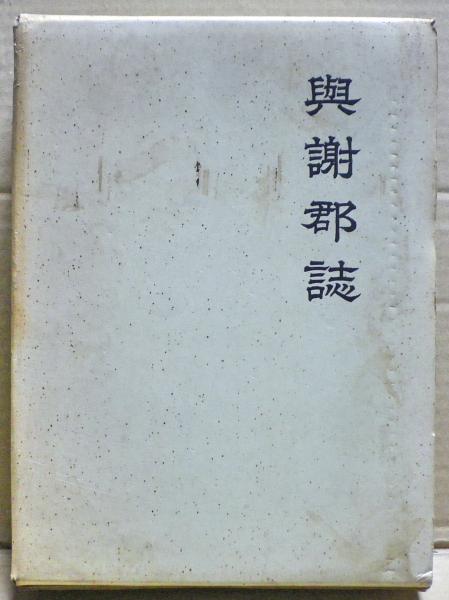 與謝郡誌